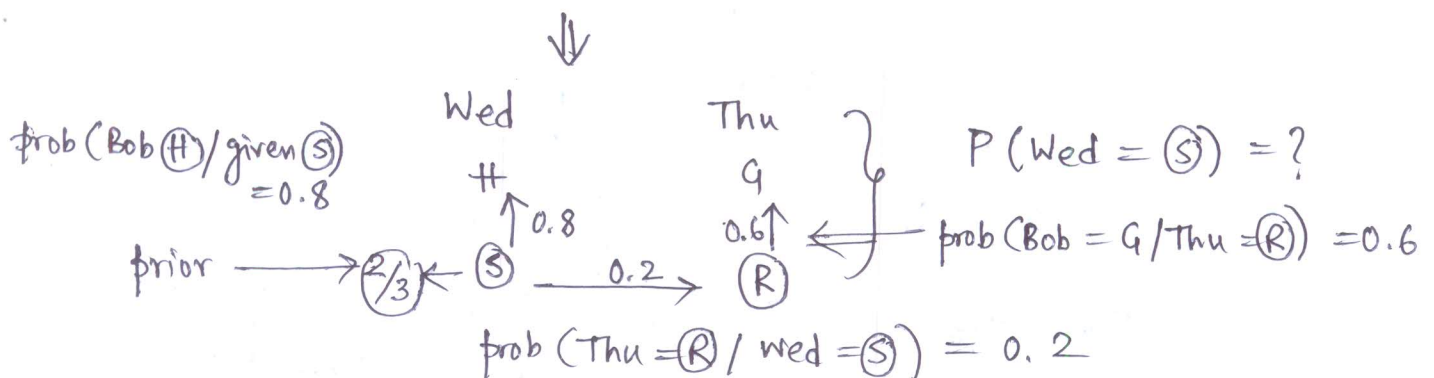 ⇓
Wed Thu
prob (Bob Ⓗ / given Ⓢ) P (Wed = Ⓢ) = ?
= 0.8
H G
↑ 0.8 0.6 ↑ ← prob (Bob = G / Thu = Ⓡ) = 0.6
prior → 2/3 ← Ⓢ 0.2 → Ⓡ
prob (Thu = Ⓡ / wed = Ⓢ) = 0.2